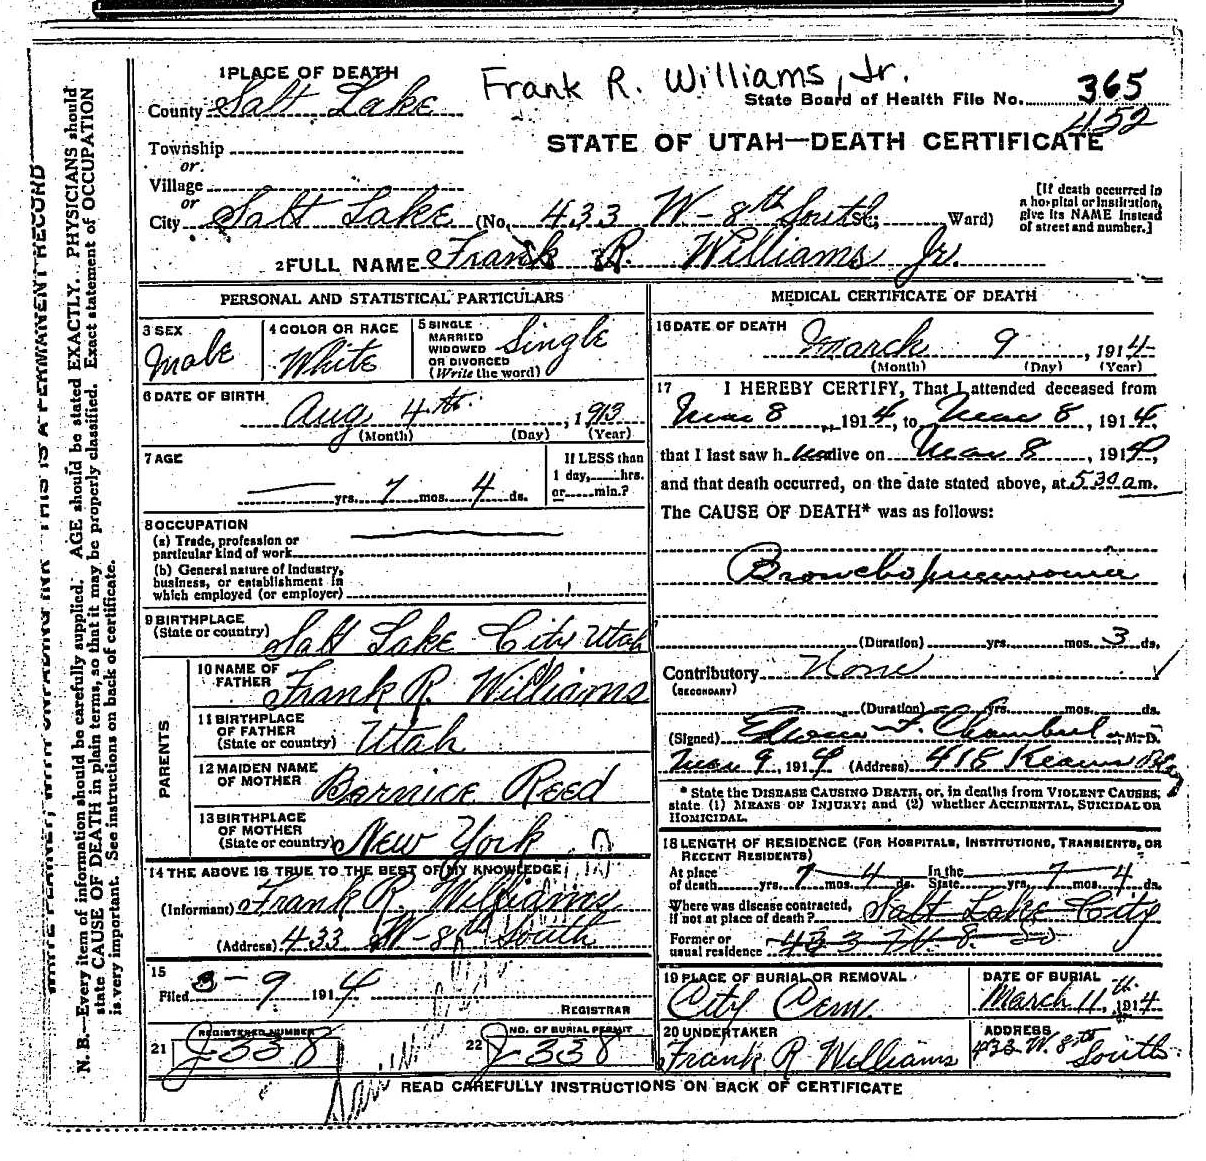 Frank R. Williams, Jr.
1 PLACE OF DEATH
County Salt Lake
State Board of Health File No. 365
452
Township
or
STATE OF UTAH—DEATH CERTIFICATE
Village
or
City Salt Lake (No. 433 W-8th South St; Ward)
[If death occurred in
a hospital or institution,
give its NAME instead
of street and number.]
2 FULL NAME Frank R. Williams Jr.
PERSONAL AND STATISTICAL PARTICULARS
3 SEX
Male
4 COLOR OR RACE
White
5 SINGLE
MARRIED
WIDOWED
OR DIVORCED
(Write the word)
Single
6 DATE OF BIRTH
Aug 4th, 1913
(Month) (Day) (Year)
7 AGE
yrs. 7 mos. 4 ds.
If LESS than
1 day, hrs.
or min.?
8 OCCUPATION
(a) Trade, profession or
particular kind of work
(b) General nature of industry,
business, or establishment in
which employed (or employer)
9 BIRTHPLACE
(State or country) Salt Lake City Utah
PARENTS
10 NAME OF
FATHER Frank R. Williams
11 BIRTHPLACE
OF FATHER
(State or country) Utah
12 MAIDEN NAME
OF MOTHER Bernice Reed
13 BIRTHPLACE
OF MOTHER
(State or country) New York
14 THE ABOVE IS TRUE TO THE BEST OF MY KNOWLEDGE
(Informant) Frank R. Williams
(Address) 433 W-8th South
15
Filed 3-9 1914
REGISTRAR
21 REGISTERED NUMBER
J338
22 NO. OF BURIAL PERMIT
J338
MEDICAL CERTIFICATE OF DEATH
16 DATE OF DEATH
March 9, 1914
(Month) (Day) (Year)
17 I HEREBY CERTIFY, That I attended deceased from
Mar 8 1914, to Mar 8, 1914,
that I last saw h alive on Mar 8, 1914,
and that death occurred, on the date stated above, at 530 am.
The CAUSE OF DEATH* was as follows:
Bronchopneumonia
(Duration) yrs. mos. 3 ds.
Contributory None
(SECONDARY)
(Duration) yrs. mos. ds.
(Signed) M. D.
Mar 9, 1914 (Address) 418 Kearns Bldg
* State the DISEASE CAUSING DEATH, or, in deaths from VIOLENT CAUSES,
state (1) MEANS OF INJURY; and (2) whether ACCIDENTAL, SUICIDAL OR
HOMICIDAL.
18 LENGTH OF RESIDENCE (FOR HOSPITALS, INSTITUTIONS, TRANSIENTS, OR
RECENT RESIDENTS)
At place
of death yrs. 7 mos. 4 ds. In the
State yrs. 7 mos. 4 ds.
Where was disease contracted,
if not at place of death? Salt Lake City
Former or
usual residence 433 W. 8. So
19 PLACE OF BURIAL OR REMOVAL
City Cem.
DATE OF BURIAL
March 11th, 1914
20 UNDERTAKER
Frank R Williams
ADDRESS
433 W. 8th South
READ CAREFULLY INSTRUCTIONS ON BACK OF CERTIFICATE
WRITE PLAINLY, WITH UNFADING INK—THIS IS A PERMANENT RECORD
N. B.—Every item of information should be carefully supplied. AGE should be stated EXACTLY. PHYSICIANS should
state CAUSE OF DEATH in plain terms, so that it may be properly classified. Exact statement of OCCUPATION
is very important. See instructions on back of certificate.